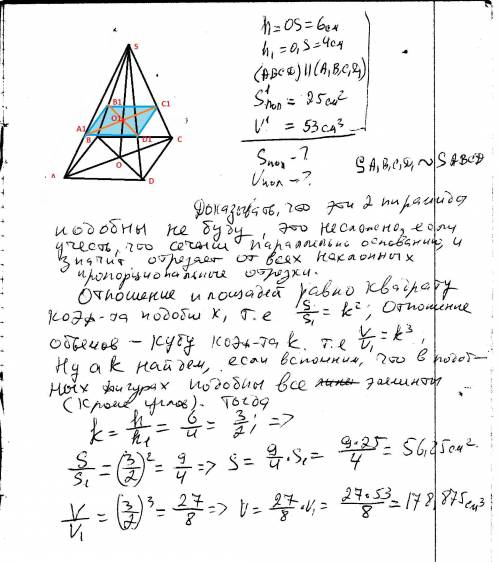 S
B1
C1
O1
A1
B
D1
C
A
O
D
h = OS = 6см
h₁ = O₁S = 4см
(ABCD) || (A₁B₁C₁D₁)
S¹пол = 25 см²
V¹ = 53 см³
Sпол - ?
Vпол - ?
SA₁B₁C₁D₁ ~ SABCD
Доказывать, что эти 2 пирамиды
подобны не буду, это несложно, если
учесть, что сечение параллельно основанию, и
значит отрезает от всех наклонных
пропорциональные отрезки.
Отношение площадей равно квадрату
коэф-та подобия х, т.е S/S₁ = k², Отношение
объемов - кубу коэф-та k. т.е V/V₁ = k³,
Ну а k найдем, если вспомним, что в подоб-
ных фигурах подобны все элементы
(кроме углов). Тогда
k = h/h₁ = 6/4 = 3/2; =>
S/S₁ = (3/2)² = 9/4 => S = 9/4 · S₁ = 9·25/4 = 56,25 см².
V/V₁ = (3/2)³ = 27/8 => V = 27/8 · V₁ = 27·53/8 = 178,875 см³